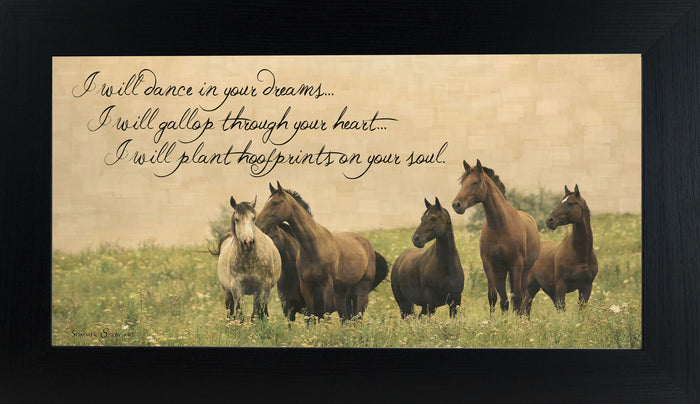 I will dance in your dreams...
I will gallop through your heart...
I will plant hoofprints on your soul.